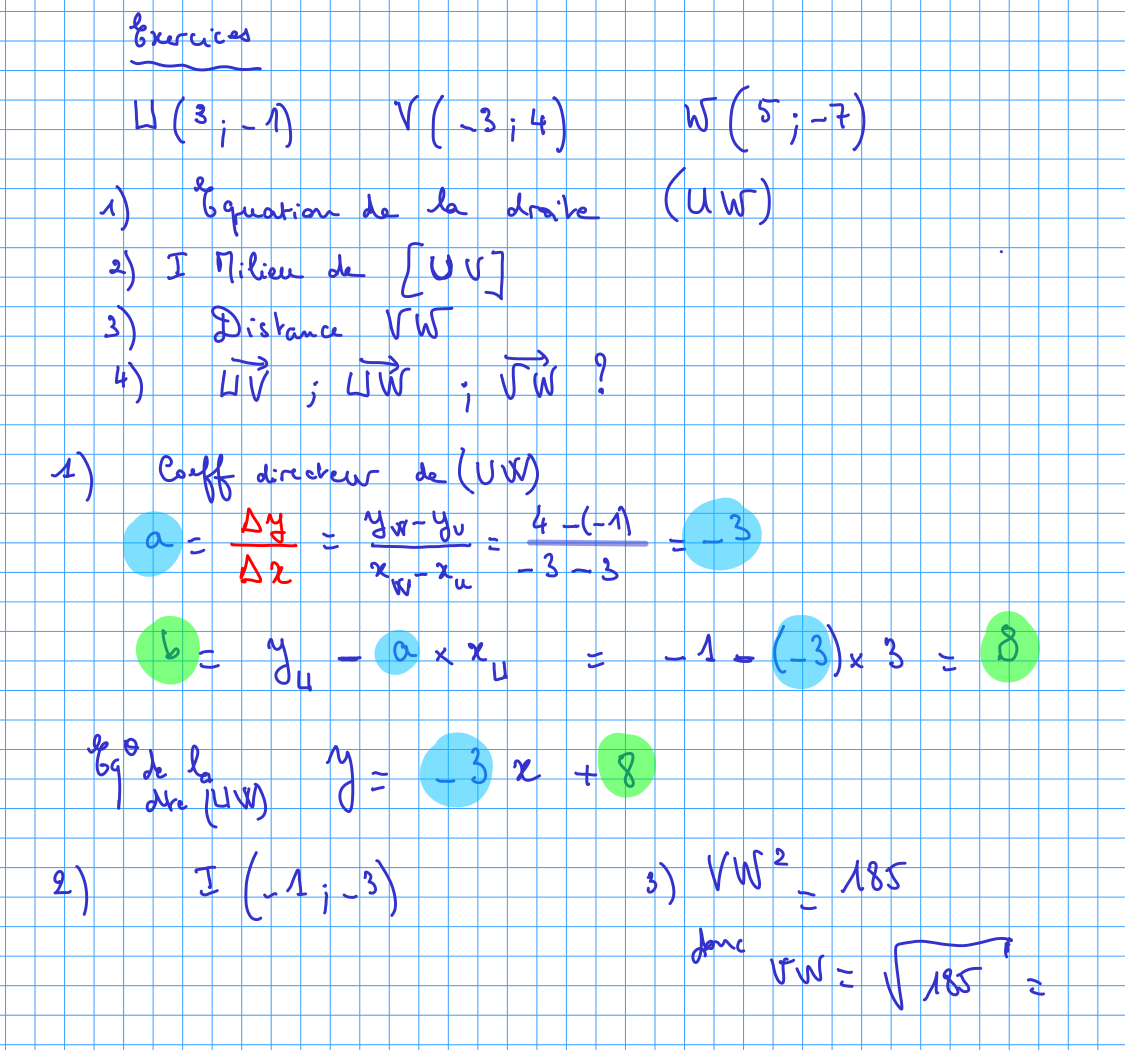 Exercices
U (3 ; -1) V (-3 ; 4) W (5 ; -7)
1) Equation de la droite (UW)
2) I Milieu de [UV]
3) Distance VW
4) \overrightarrow{UV} ; \overrightarrow{UW} ; \overrightarrow{VW} ?
1) Coeff directeur de (UW)
a = \frac{Δy}{Δx} = \frac{y_W - y_U}{x_W - x_U} = \frac{4 - (-1)}{-3 - 3} = -3
b = y_U - a × x_U = -1 - (-3) × 3 = 8
Eq° de la dte (UW) y = -3 x + 8
2) I (-1 ; -3) 3) VW² = 185
donc VW = √185 =